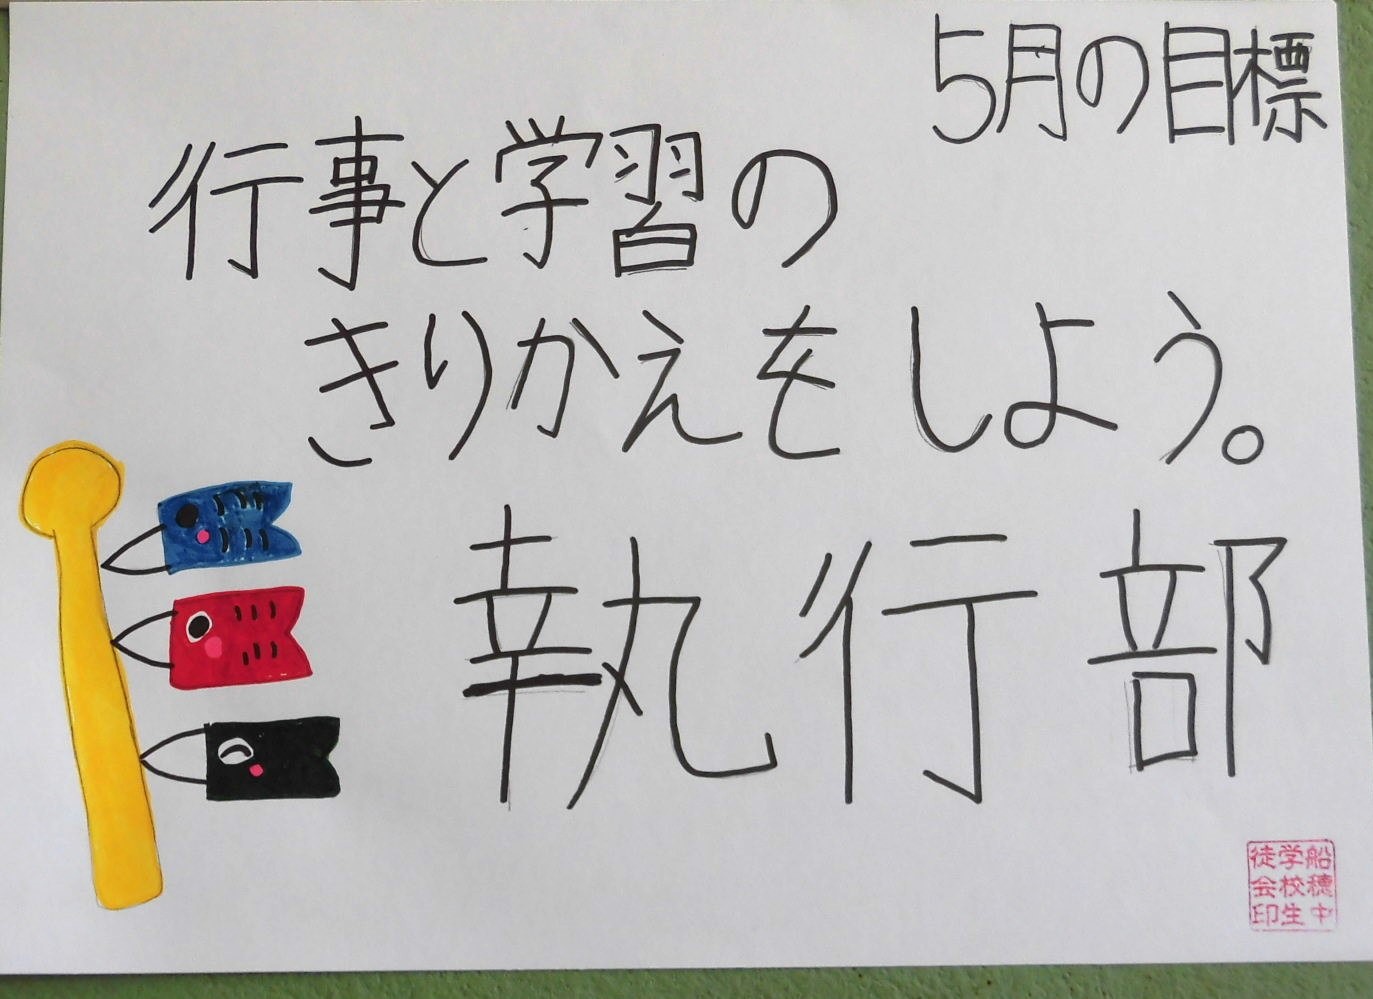 5月の目標
行事と学習の
きりかえをしよう。
執行部
船穂中
学校生
徒会印